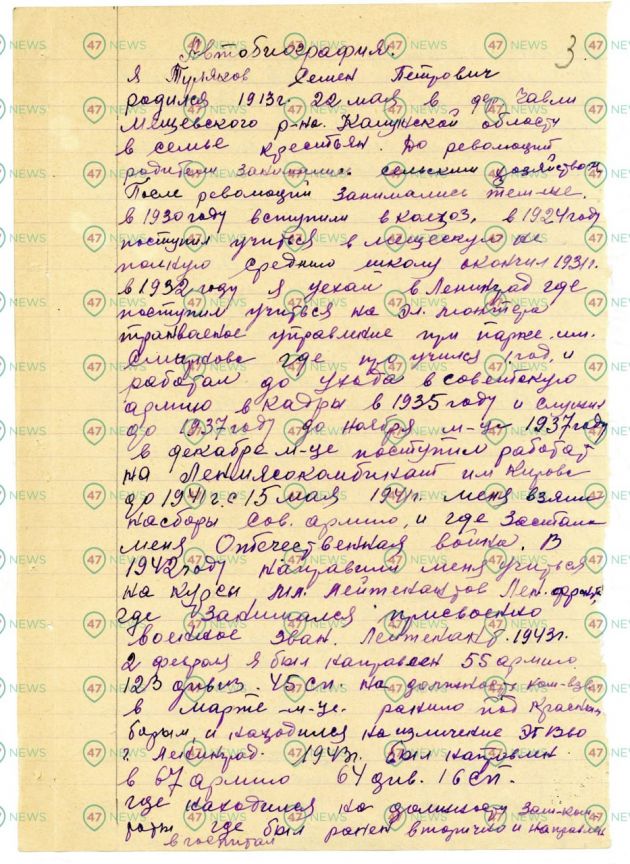 3
Автобиография.
я Туляков Семен Петрович
родился 1913г. 22 мая в дер Чавли
Мещевского р-на. Калужской области
в семье крестьян. До революций
родители занимались сельским хозяйством
После революций занимались тем-же.
в 1930 году вступили в колхоз, в 1924 году
поступил учиться в мещескую не
полную среднию школу окончил 1931г.
в 1932 году я уехал в Ленинград где
поступил учиться на эл. монтера
трамваеное управление при парже. им.
Смирнова где проучился 1 год, и
работал до ухода в советскую
армию в кадры в 1935 году и служил
до 1937 году до ноября м-це 1937 году
в декабре м-це поступил работат
на Ленмясокомбинат им Кирова
до 1941 г. с 15 мая 1941г. меня взяли
на сборы Сов. армию, и где застала
меня Отечественная война. В
1942 году направили меня учиться
на курсы мл. лейтенантов Лен. фронта
где занимался присвоено
военное зван. Лейтенант. 1943г.
2 февраля я был направлен 55 армию
123 дивиз. 45 сп. на должность ком-взв
в марте м-це. ранило под Красным
бором, и находился на изличение
г. Ленинград. 1943г. был направлен
в 67 армию 64 див. 16 сп.
где находился на должности Зам-ком
роты где был ранен вторично и направлен
в госпитал
47 NEWS